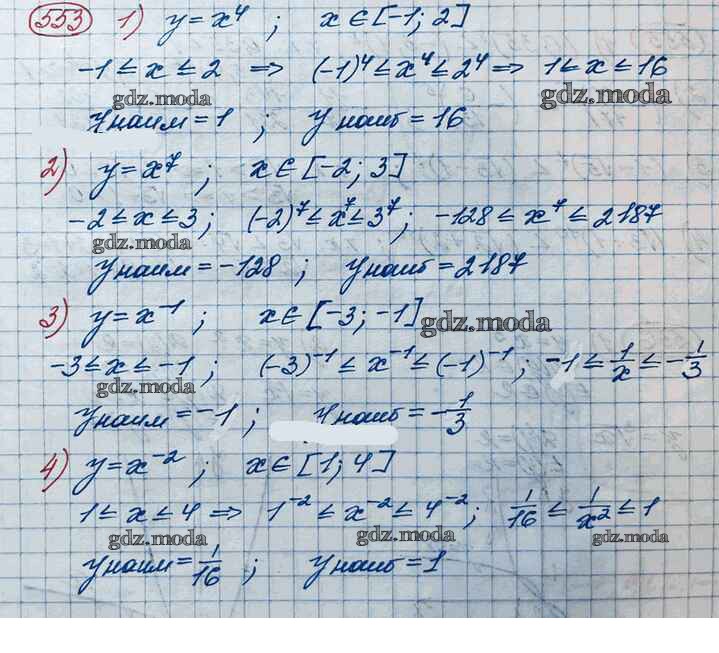 553 1) y = x⁴ ; x ∈ [-1; 2]
-1 ≤ x ≤ 2 ⇒ (-1)⁴ ≤ x⁴ ≤ 2⁴ ⇒ 1 ≤ x ≤ 16
gdz.moda gdz.moda
Yнаим = 1 ; Yнаиб = 16
2) y = x⁷ ; x ∈ [-2; 3]
-2 ≤ x ≤ 3; (-2)⁷ ≤ x⁷ ≤ 3⁷; -128 ≤ x⁷ ≤ 2187
gdz.moda
Yнаим = -128 ; Yнаиб = 2187
3) y = x⁻¹ ; x ∈ [-3; -1]
gdz.moda
-3 ≤ x ≤ -1 ; (-3)⁻¹ ≤ x⁻¹ ≤ (-1)⁻¹ ; -1 ≤ 1/x ≤ -1/3
gdz.moda
Yнаим = -1 ; Yнаиб = -1/3
4) y = x⁻² ; x ∈ [1; 4]
1 ≤ x ≤ 4 ⇒ 1⁻² ≤ x⁻² ≤ 4⁻²; 1/16 ≤ 1/x² ≤ 1
gdz.moda gdz.moda gdz.moda
Yнаим = 1/16 ; Yнаиб = 1